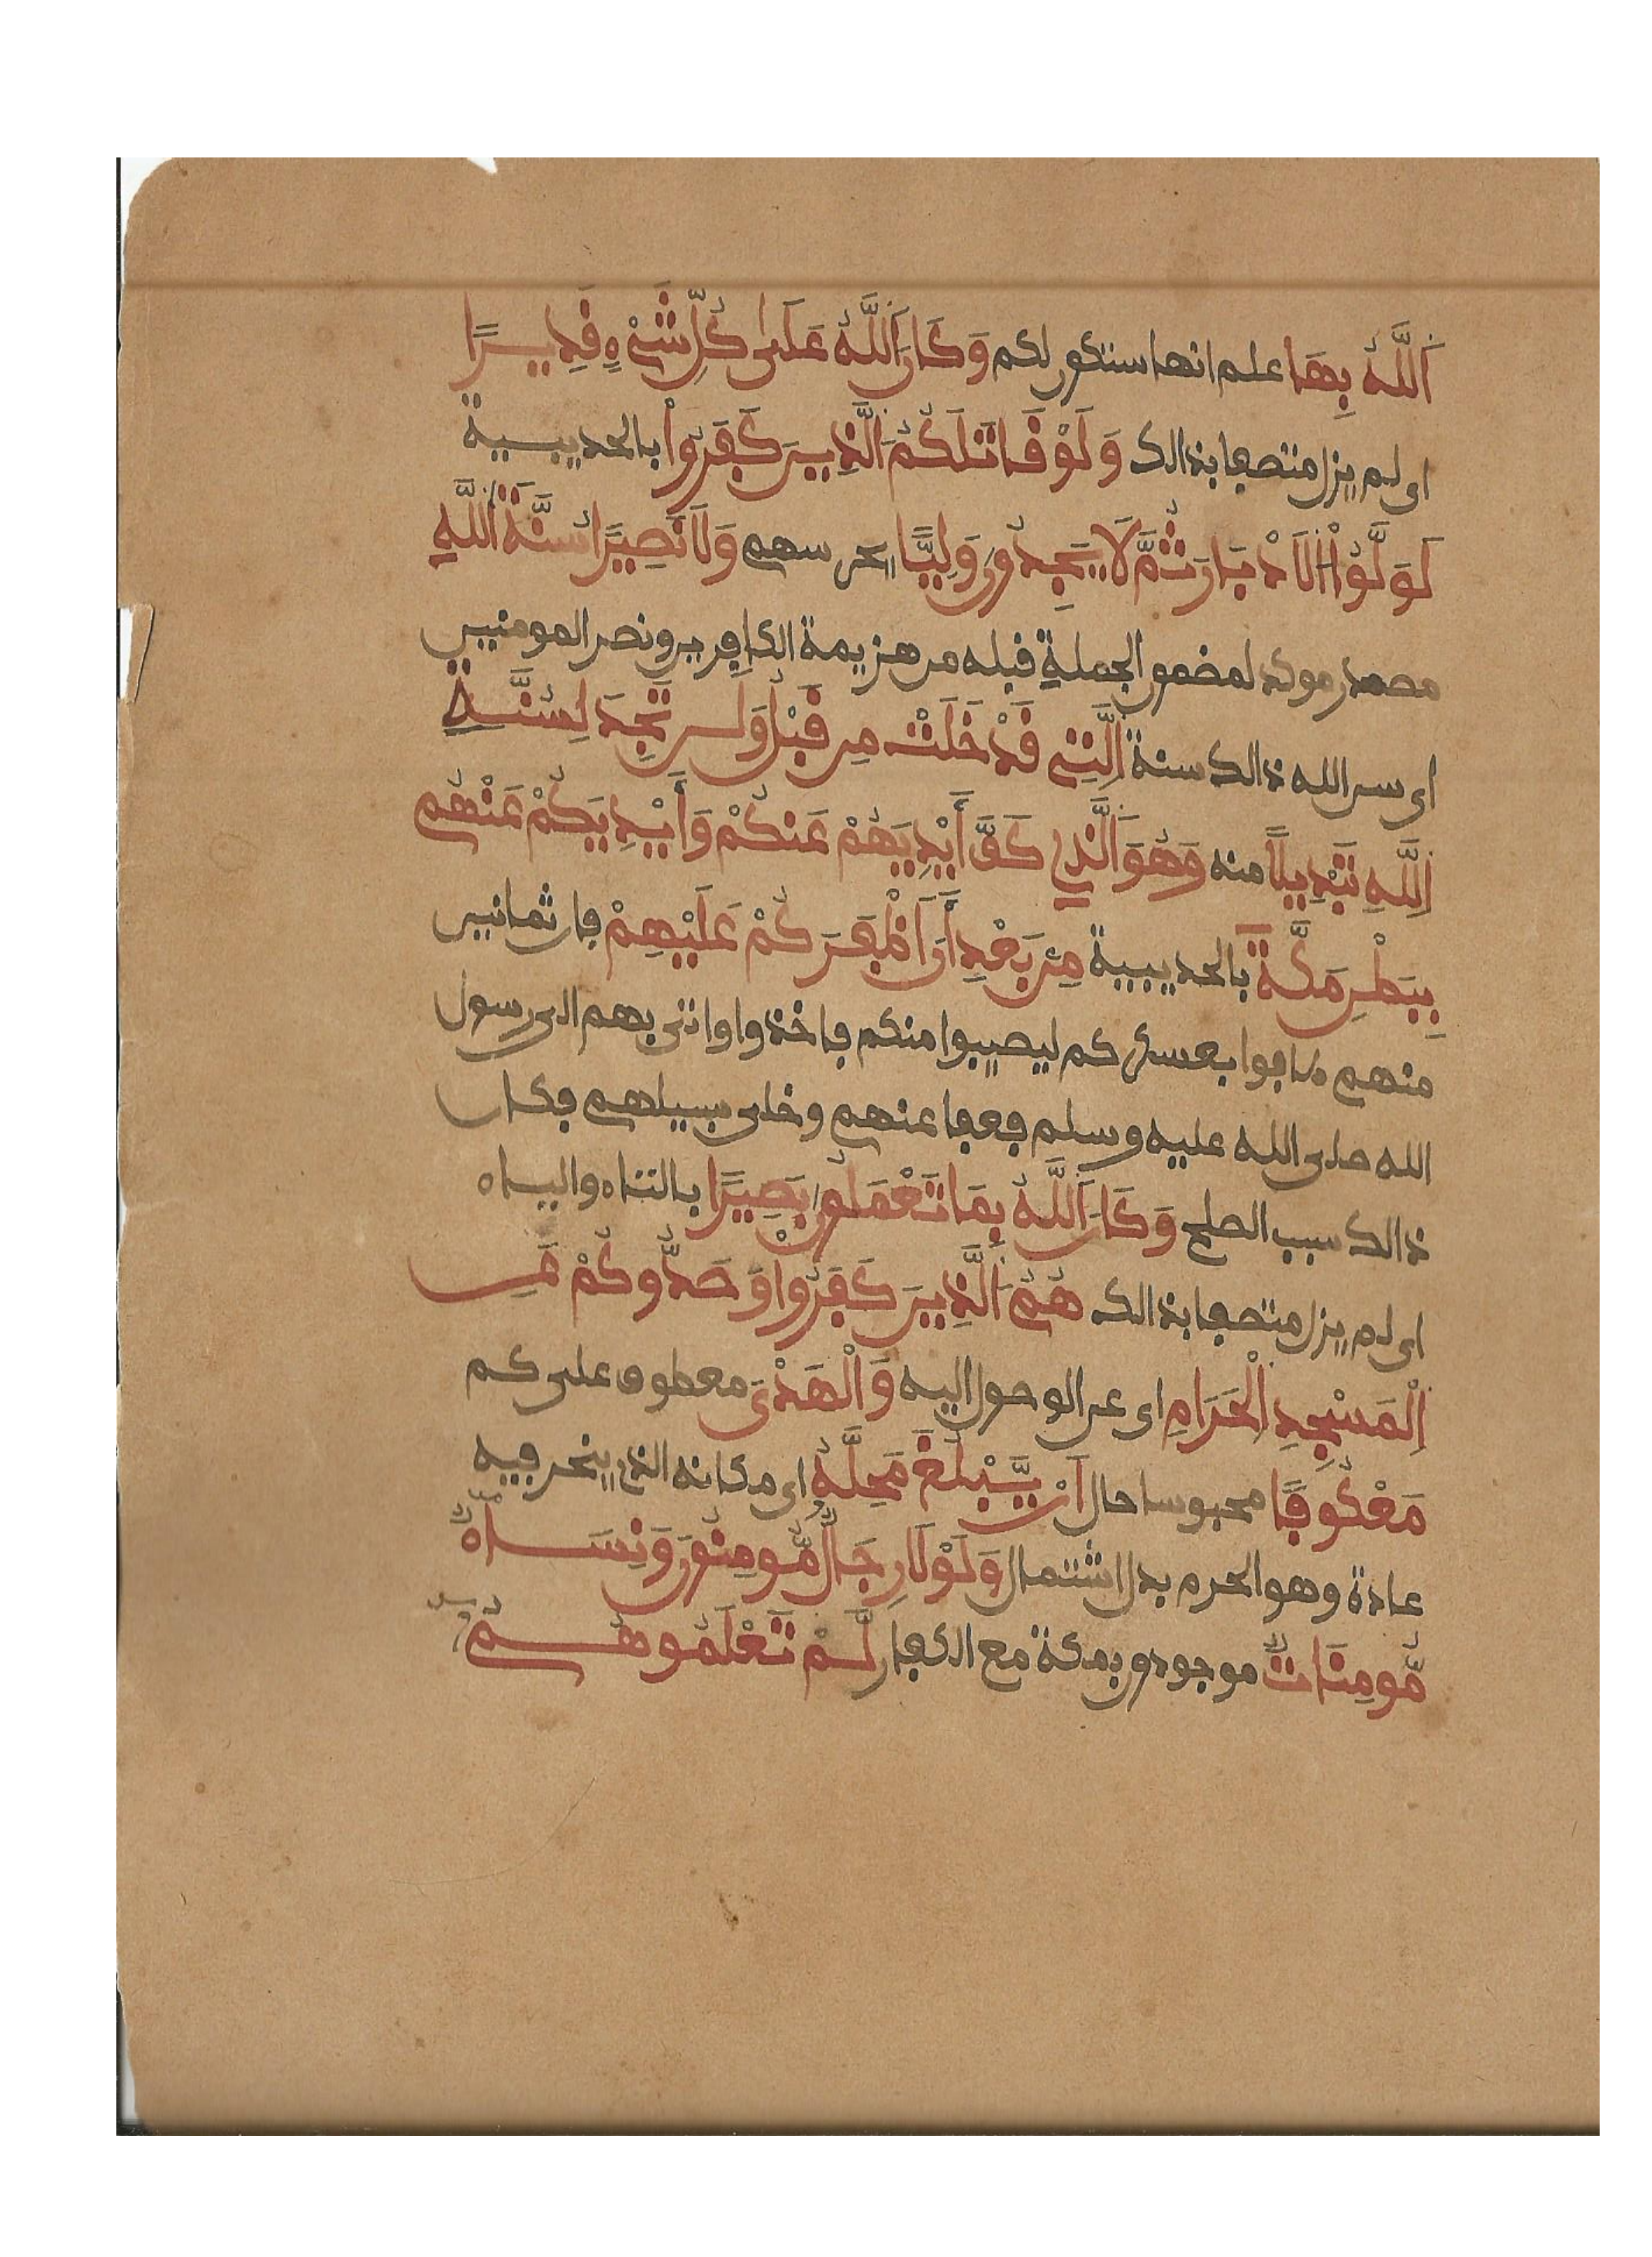 اَللَّهُ بِهَا علم انها ستكون لكم وَكَانَ اَللَّهُ عَلَىٰ كُلِّ شَےْءٖ قَدِيـرًا
اى لم يزل متصفا بذالك وَلَوْ قَاتَلَكُمُ اَلَّذِيـنَ كَفَرُواْ بالحديبيـة
لَوَلَّوُاْ اُلَادْبَارَ ثُمَّ لَا يَجِدُونَ وَلِيًّا يحرسهم وَلَا نَصِيرًا سُنَّةَ اَللَّهِ
مصدر موكد لمضمون الجملة قبله من هزيمة الكافرين ونصر المومنين
اى سن الله ذالك سنة اِلَّتِے قَدْ خَلَتْ مِن قَبْلُ وَلَن تَجِدَ لِسُنَّـةِ
اِللَّهِ تَبْدِيلًا منه وَهُوَ اَلَّذِى كَفَّ أَيْدِيَهُمْ عَنكُمْ وَأَيْدِيَكُمْ عَنْهُم
بِبَطْنِ مَكَّةَ بالحديبية مِنۢ بَعْدِ أَنَ اَظْفَرَكُمْ عَلَيْهِمْ فان ثمانين
منهم طافوا بعسكركم ليصيبوا منكم فاخذوا واتى بهم الى رسول
الله صلى الله عليه وسلم فعفا عنهم وخلى سبيلهم فكان
ذالك سبب الصلح وَكَانَ اَللَّهُ بِمَا تَعْمَلُونَ بَصِيرًا بالتاء والياء
اى لم يزل متصفا بذالك هُمُ اَلَّذِيـنَ كَفَرُواْ وَصَدُّوكُمْ عَنِ
اِلْمَسْجِدِ اِلْحَرَامِ اى عن الوصول اليه وَالْهَدْىَ معطوف على كم
مَعْكُوفًا محبوسا حال أَنْ يَّبْلُغَ مَحِلَّهُ اى مكانه الذى ينحر فيه
عادة وهو الحرم بدل اشتمال وَلَوْلَا رِجَالٌ مُّومِنُونَ وَنِسَـاءٌ
مُّومِنَاتٌ موجودون بمكة مع الكفار لَّـمْ تَعْلَمُوهُـمُ